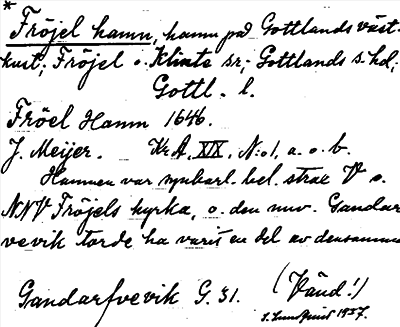 *
Fröjel hamn, hamn på Gottlands väst-
kust; Fröjel o. Klinte sr; Gottlands s. hd;
Gottl. l.
Fröel Hamn 1646.
J. Meijer. Kr. A, XIX, N:o 1, a. o. b.
Hamnen var synbarl. bel. strax V o.
NNV Fröjels kyrka, o. den nuv. Gandar
vevik torde ha varit en del av densamma
Gandarfvevik G. 31. (Vänd!)
I. Lundquist 1937.